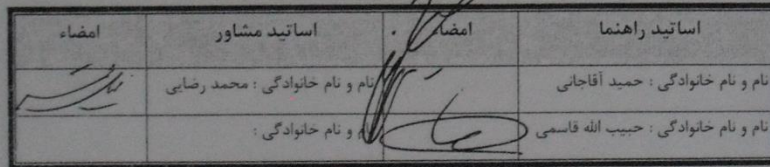 اساتید راهنما امضاء اساتید مشاور امضاء
نام و نام خانوادگی : حمید آقاجانی نام و نام خانوادگی : محمد رضایی
نام و نام خانوادگی : حبیب الله قاسمی نام و نام خانوادگی :